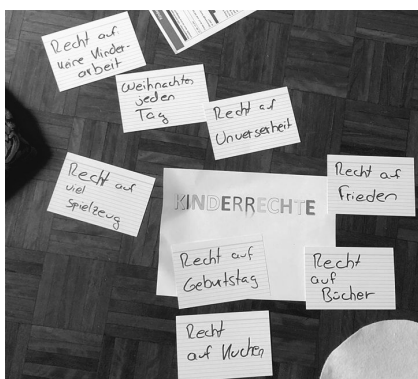 Recht auf
keine Kinder-
arbeit
Weihnachten
jeden
Tag
Recht auf
Unversehrheit
Recht auf
viel
Spielzeug
KINDERRECHTE
Recht auf
Frieden
Recht auf
Geburtstag
Recht
auf
Bücher
Recht
auf Kuchen